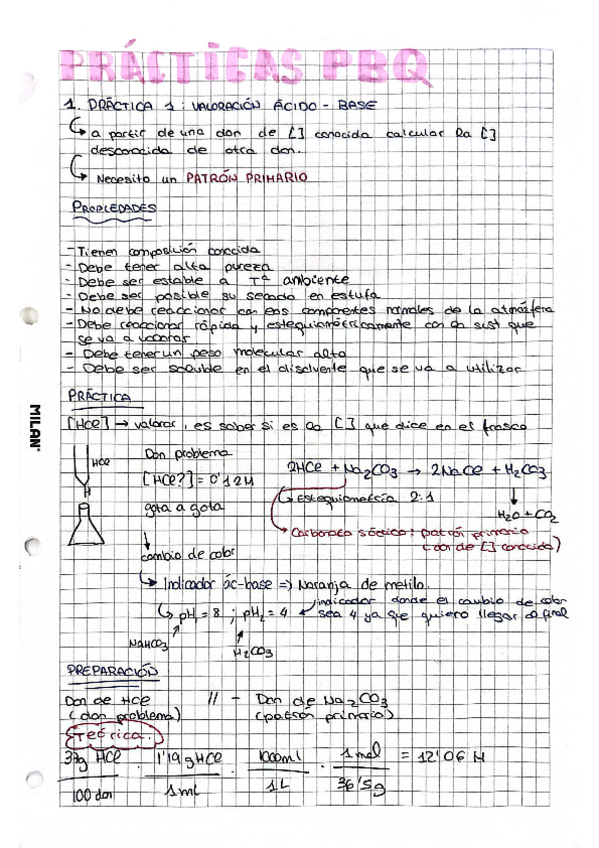 PRÁCTICAS PBQ
1. PRÁCTICA 1: VALORACIÓN ÁCIDO - BASE
a partir de una don de [] conocida calcular la []
desconocida de otra don.
Necesito un PATRÓN PRIMARIO
PROPIEDADES
- Tienen composición conocida
- Debe tener alta pureza
- Debe ser estable a Tª ambiente
- Debe ser posible su secado en estufa
- No debe reaccionar con los componentes normales de la atmósfera
- Debe reaccionar rápida y estequiométricamente con la sust que
se va a valorar
- Debe tener un peso molecular alto
- Debe ser soluble en el disolvente que se va a utilizar
PRÁCTICA
[HCl] → valorar, es saber si es la [] que dice en el frasco
MILAN
HCl
Don problema
[HCl?] = 0'12M
gota a gota
cambio de color
2HCl + Na2CO3 → 2NaCl + H2CO3
Estequiometría 2:1
H2O + CO2
Carbonato sódico: patrón primario
(don de [] conocida)
Indicador ác-base => Naranja de metilo.
pH1 = 8 ; pH2 = 4
indicador donde el cambio de color
sea 4 ya que quiero llegar al final
NaHCO3
H2CO3
PREPARACIÓN
Don de HCl // - Don de Na2CO3
(don problema) (patrón primario)
Teórica.
37g HCl / 100 don · 1'19 g HCl / 1ml · 1000ml / 1L · 1mol / 36'5g = 12'06 M